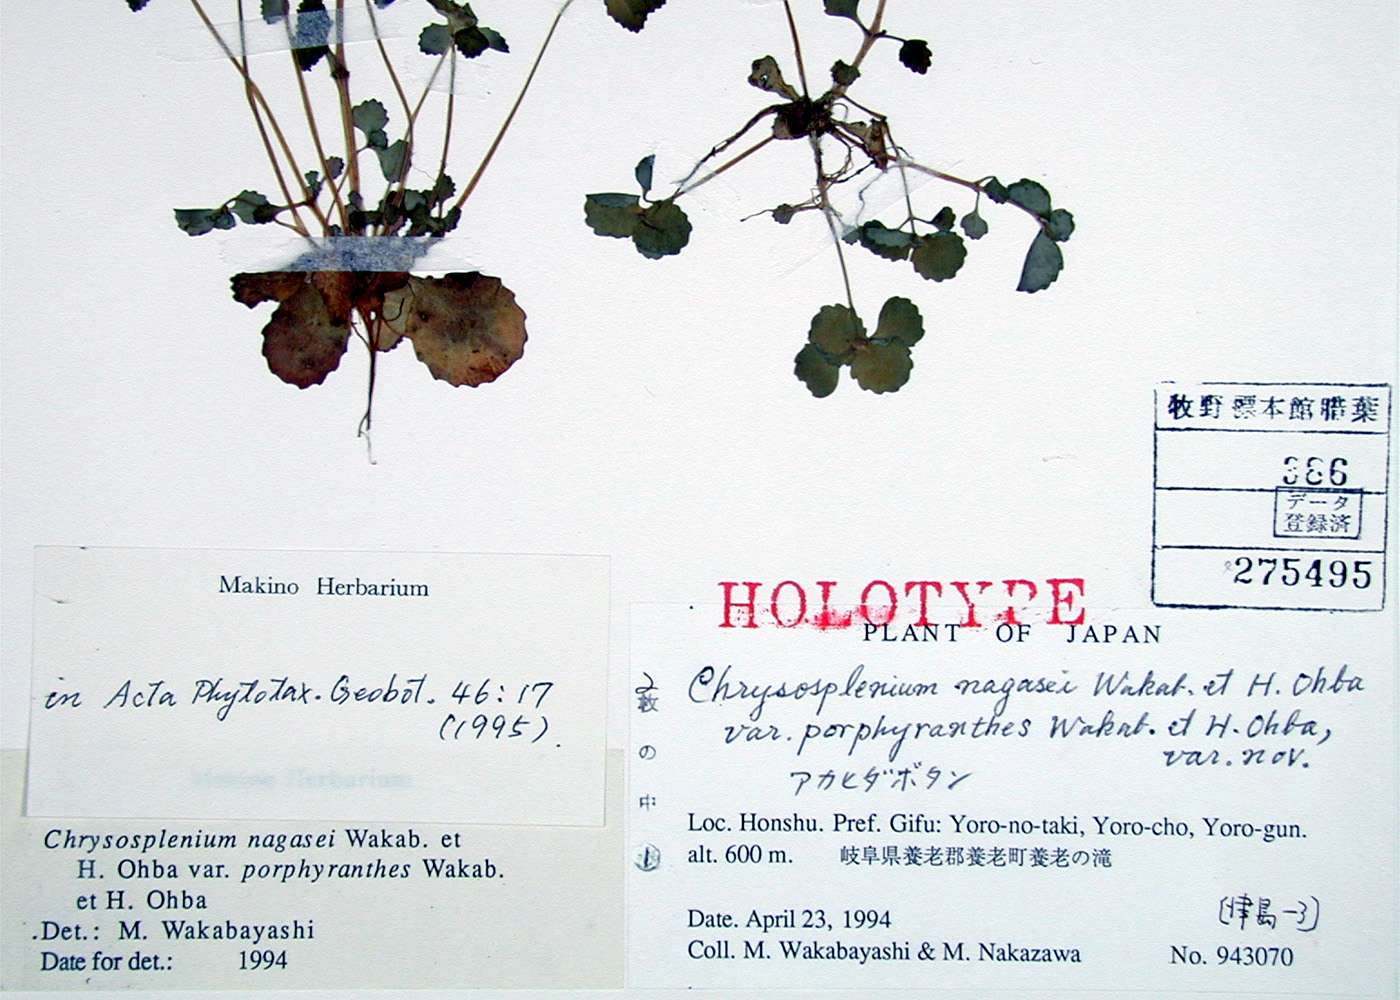 牧野標本館腊葉
386
データ
登録済
275495
Makino Herbarium
in Acta Phytotax. Geobot. 46:17
(1995).
Makino Herbarium
Chrysosplenium nagasei Wakab. et
H. Ohba var. porphyranthes Wakab.
et H. Ohba
.Det.: M. Wakabayashi
Date for det.: 1994
HOLOTYPE
PLANT OF JAPAN
Chrysosplenium nagasei Wakab. et H. Ohba
var. porphyranthes Wakab. et H. Ohba,
var. nov.
アカヒダボタン
の
中
Loc. Honshu. Pref. Gifu: Yoro-no-taki, Yoro-cho, Yoro-gun.
alt. 600 m. 岐阜県養老郡養老町養老の滝
[津島-3]
Date. April 23, 1994
Coll. M. Wakabayashi & M. Nakazawa No. 943070